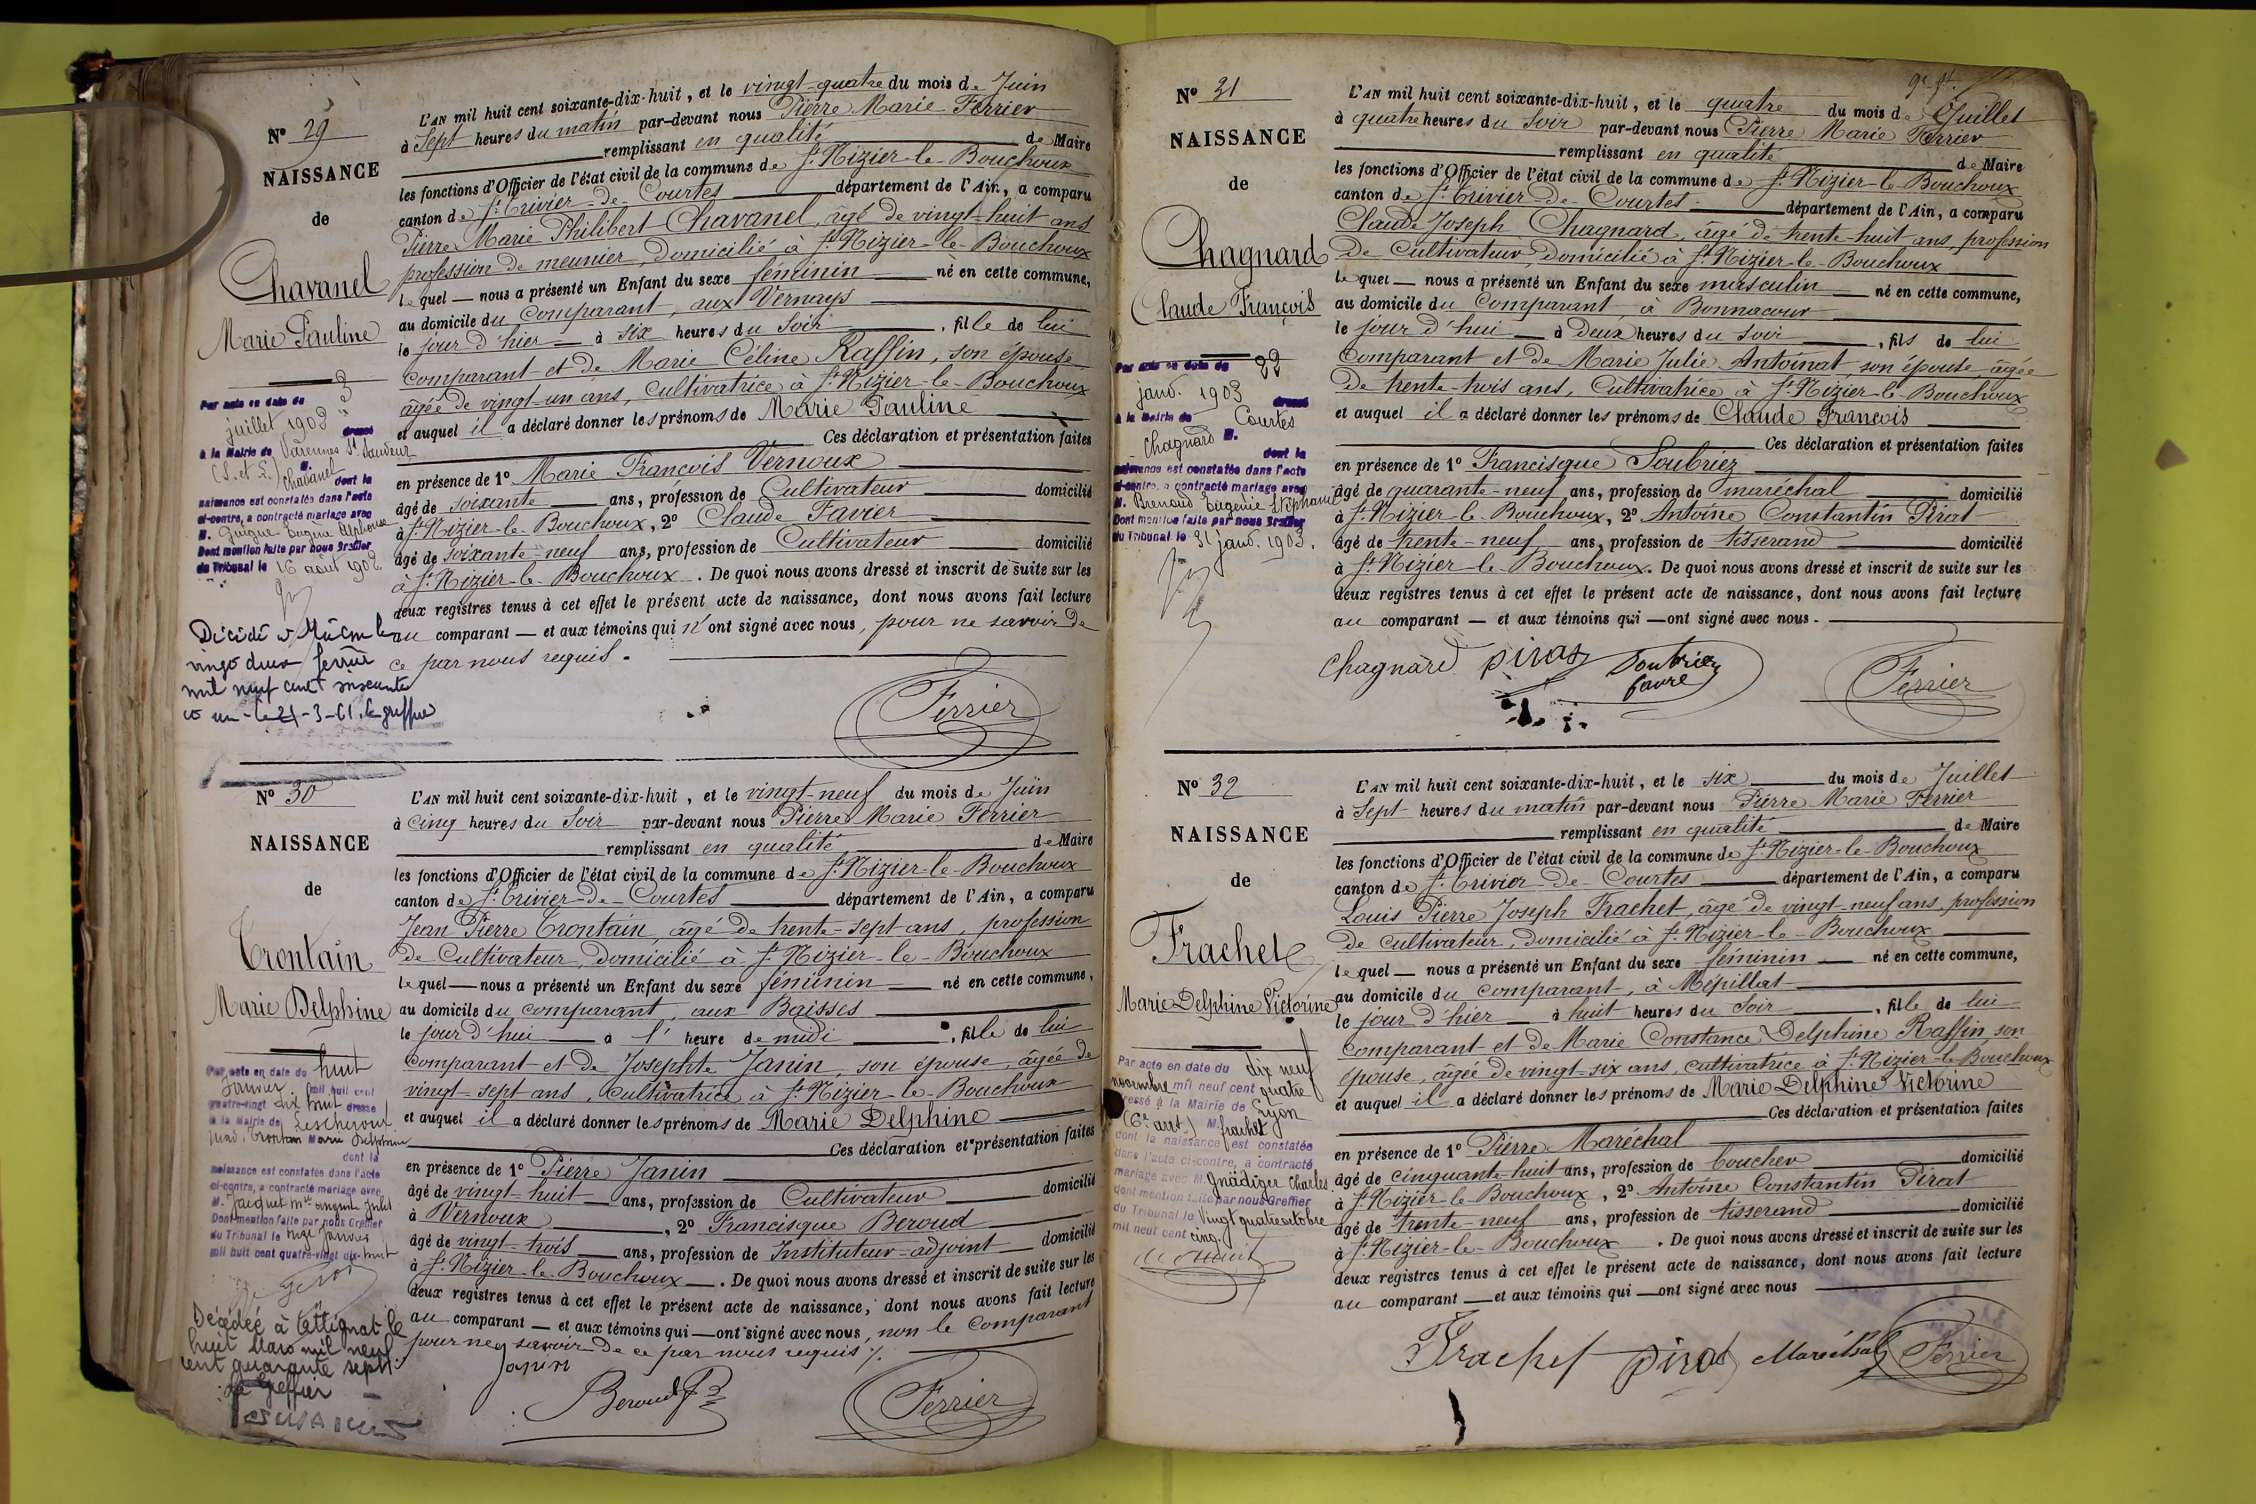 Nº 29
NAISSANCE
de
Chavanel
Marie Pauline
Par acte en date du 3
juillet 1902
dressé
à la Mairie de Varennes St Sauveur
(S. et L.) M.
Chavanel dont la
naissance est constatée dans l'acte
ci-contre, a contracté mariage avec
M. Guigue Eugène Alphonse
Dont mention faite par nous Greffier
du Tribunal le 16 août 1902
Décédé à Mâcon le
vingt deux février
mil neuf cent soixante
et un - le 21-3-61. Le greffier
L'AN mil huit cent soixante-dix-huit, et le vingt-quatre du mois de Juin
à Sept heures du matin par-devant nous Pierre Marie Ferrier
remplissant en qualité de Maire
les fonctions d'Officier de l'état civil de la commune de St Nizier-le-Bouchoux
canton de St Trivier-de-Courtes département de l'Ain, a comparu
Pierre Marie Philibert Chavanel, âgé de vingt-huit ans
profession de meunier, domicilié à St Nizier-le-Bouchoux
lequel nous a présenté un Enfant du sexe féminin né en cette commune,
au domicile du comparant, aux Vernays
le jour d'hier à six heures du Soir, fille de lui
comparant et de Marie Céline Raffin, son épouse
âgée de vingt-un ans, cultivatrice à St Nizier-le-Bouchoux
et auquel il a déclaré donner les prénoms de Marie Pauline
Ces déclaration et présentation faites
en présence de 1º Marie François Vernoux
âgé de soixante ans, profession de Cultivateur domicilié
à St Nizier-le-Bouchoux, 2º Claude Favier
âgé de soixante-neuf ans, profession de Cultivateur domicilié
à St Nizier-le-Bouchoux. De quoi nous avons dressé et inscrit de suite sur les
deux registres tenus à cet effet le présent acte de naissance, dont nous avons fait lecture
au comparant et aux témoins qui n'ont signé avec nous, pour ne savoir de
ce par nous requis.
Ferrier
Nº 30
NAISSANCE
de
Trontain
Marie Delphine
Par acte en date du huit
Janvier mil huit cent
quatre-vingt dix huit dressé
à la Mairie de Lescheroux
Trontain Marie Delphine
dont la
naissance est constatée dans l'acte
ci-contre, a contracté mariage avec
M. Jacquet
Dont mention faite par nous Greffier
du Tribunal le Janvier
mil huit cent quatre-vingt dix-huit
Décédée à Attignat le
huit Mars mil neuf
cent quarante sept.
Le Greffier
L'AN mil huit cent soixante-dix-huit, et le vingt-neuf du mois de Juin
à Cinq heures du Soir par-devant nous Pierre Marie Ferrier
remplissant en qualité de Maire
les fonctions d'Officier de l'état civil de la commune de St Nizier-le-Bouchoux
canton de St Trivier-de-Courtes département de l'Ain, a comparu
Jean Pierre Trontain, âgé de trente-sept ans, profession
de Cultivateur, domicilié à St Nizier-le-Bouchoux
lequel nous a présenté un Enfant du sexe féminin né en cette commune,
au domicile du comparant, aux Baisses
le jour d'hui à l' heure de midi, fille de lui
comparant et de Josephte Janin, son épouse, âgée de
vingt-sept ans, cultivatrice à St Nizier-le-Bouchoux
et auquel il a déclaré donner les prénoms de Marie Delphine
Ces déclaration et présentation faites
en présence de 1º Pierre Janin
âgé de vingt-huit ans, profession de Cultivateur domicilié
à Vernoux, 2º Francisque Beroud
âgé de vingt-trois ans, profession de Instituteur-adjoint domicilié
à St Nizier-le-Bouchoux. De quoi nous avons dressé et inscrit de suite sur les
deux registres tenus à cet effet le présent acte de naissance, dont nous avons fait lecture
au comparant et aux témoins qui ont signé avec nous, non le comparant
pour ne savoir de ce par nous requis
Janin
Beroud
Ferrier
Nº 31
NAISSANCE
de
Chagnard
Claude François
Par acte en date du 22
janv. 1903 dressé
à la Mairie de Courtes
Chagnard M.
dont la
naissance est constatée dans l'acte
ci-contre, a contracté mariage avec
M. Brenaud Eugénie Stéphanie
Dont mention faite par nous Greffier
du Tribunal le 31 janv. 1903.
L'AN mil huit cent soixante-dix-huit, et le quatre du mois de Juillet
à quatre heures du Soir par-devant nous Pierre Marie Ferrier
remplissant en qualité de Maire
les fonctions d'Officier de l'état civil de la commune de St Nizier-le-Bouchoux
canton de St Trivier-de-Courtes département de l'Ain, a comparu
Claude Joseph Chagnard, âgé de trente-huit ans, profession
de Cultivateur, domicilié à St Nizier-le-Bouchoux
lequel nous a présenté un Enfant du sexe masculin né en cette commune,
au domicile du comparant, à Bonnacour
le jour d'hui à Deux heures du soir, fils de lui
comparant et de Marie Julie Antoinat son épouse âgée
de trente-trois ans, Cultivatrice à St Nizier-le-Bouchoux
et auquel il a déclaré donner les prénoms de Claude François
Ces déclaration et présentation faites
en présence de 1º Francisque Soubriez
âgé de quarante-neuf ans, profession de maréchal domicilié
à St Nizier-le-Bouchoux, 2º Antoine Constantin Pirat
âgé de trente-neuf ans, profession de tisserand domicilié
à St Nizier-le-Bouchoux. De quoi nous avons dressé et inscrit de suite sur les
deux registres tenus à cet effet le présent acte de naissance, dont nous avons fait lecture
au comparant et aux témoins qui ont signé avec nous.
Chagnard Pirat Soubriez
favre
Ferrier
Nº 32
NAISSANCE
de
Frachet
Marie Delphine Victorine
Par acte en date du dix neuf
novembre mil neuf cent quatre
dressé à la Mairie de Lyon
(6e arrt) M frachet
dont la naissance est constatée
dans l'acte ci-contre, a contracté
mariage avec M Gnädizer Charles
dont mention faite par nous Greffier
du Tribunal le Vingt quatre octobre
mil neuf cent cinq.
L'AN mil huit cent soixante-dix-huit, et le six du mois de Juillet
à Sept heures du matin par-devant nous Pierre Marie Ferrier
remplissant en qualité de Maire
les fonctions d'Officier de l'état civil de la commune de St Nizier-le-Bouchoux
canton de St Trivier-de-Courtes département de l'Ain, a comparu
Louis Pierre Joseph Frachet, âgé de vingt-neuf ans, profession
de cultivateur, domicilié à St Nizier-le-Bouchoux
lequel nous a présenté un Enfant du sexe féminin né en cette commune,
au domicile du comparant, à Mépillat
le jour d'hier à huit heures du Soir, fille de lui
comparant et de Marie Constance Delphine Raffin, son
épouse, âgée de vingt-six ans, cultivatrice à St Nizier-le-Bouchoux
et auquel il a déclaré donner les prénoms de Marie Delphine Victorine
Ces déclaration et présentation faites
en présence de 1º Pierre Maréchal
âgé de cinquante-huit ans, profession de boucher domicilié
à St Nizier-le-Bouchoux, 2º Antoine Constantin Pirat
âgé de trente-neuf ans, profession de tisserand domicilié
à St Nizier-le-Bouchoux. De quoi nous avons dressé et inscrit de suite sur les
deux registres tenus à cet effet le présent acte de naissance, dont nous avons fait lecture
au comparant et aux témoins qui ont signé avec nous
Frachet Pirat Maréchal Ferrier